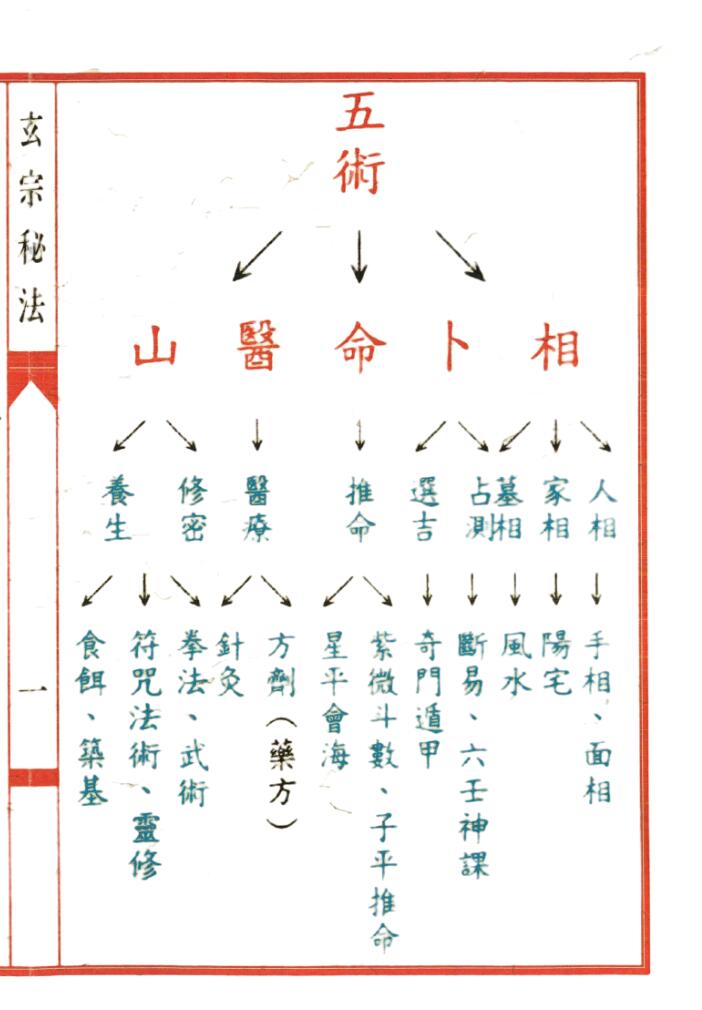 玄宗秘法
一
五術
山醫命卜相
養生
修密
醫療
推命
選吉
占測
墓相
家相
人相
食餌、築基
符咒法術、靈修
拳法、武術
針灸
方劑（藥方）
星平會海
紫微斗數、子平推命
奇門遁甲
斷易、六壬神課
風水
陽宅
手相、面相